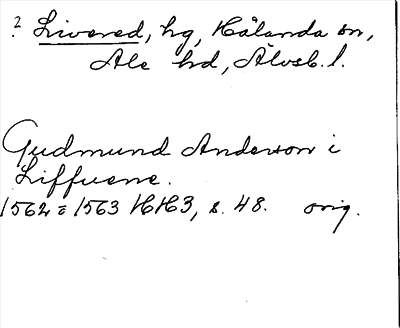 ? Livered, hg, Hålanda sn,
Ale hd, Älvsb. l.
Gudmund Anderson i
Liffuerne.
1562 = 1563 HH3, s. 48. orig.